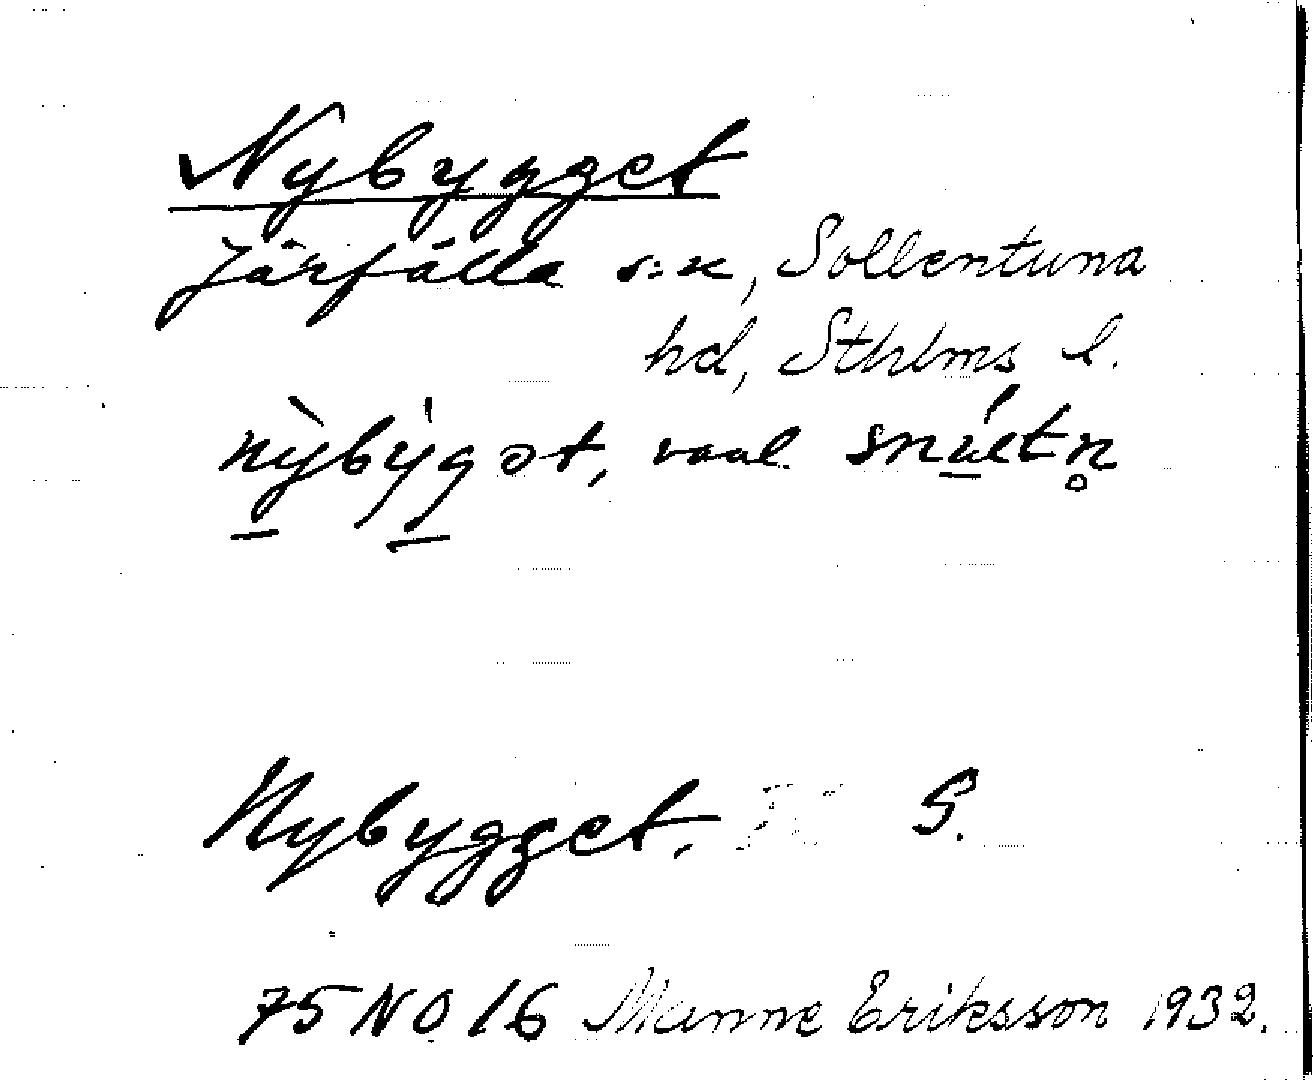 Nybygget
Järfälla s:n, Sollentuna
hd, Sthlms l.
nỳbýgət,
Nybygget. S.
75 NO 16 Manne Eriksson 1932.